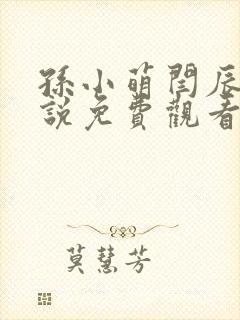 孫小萌閆辰
說免費觀看
莫慧芳